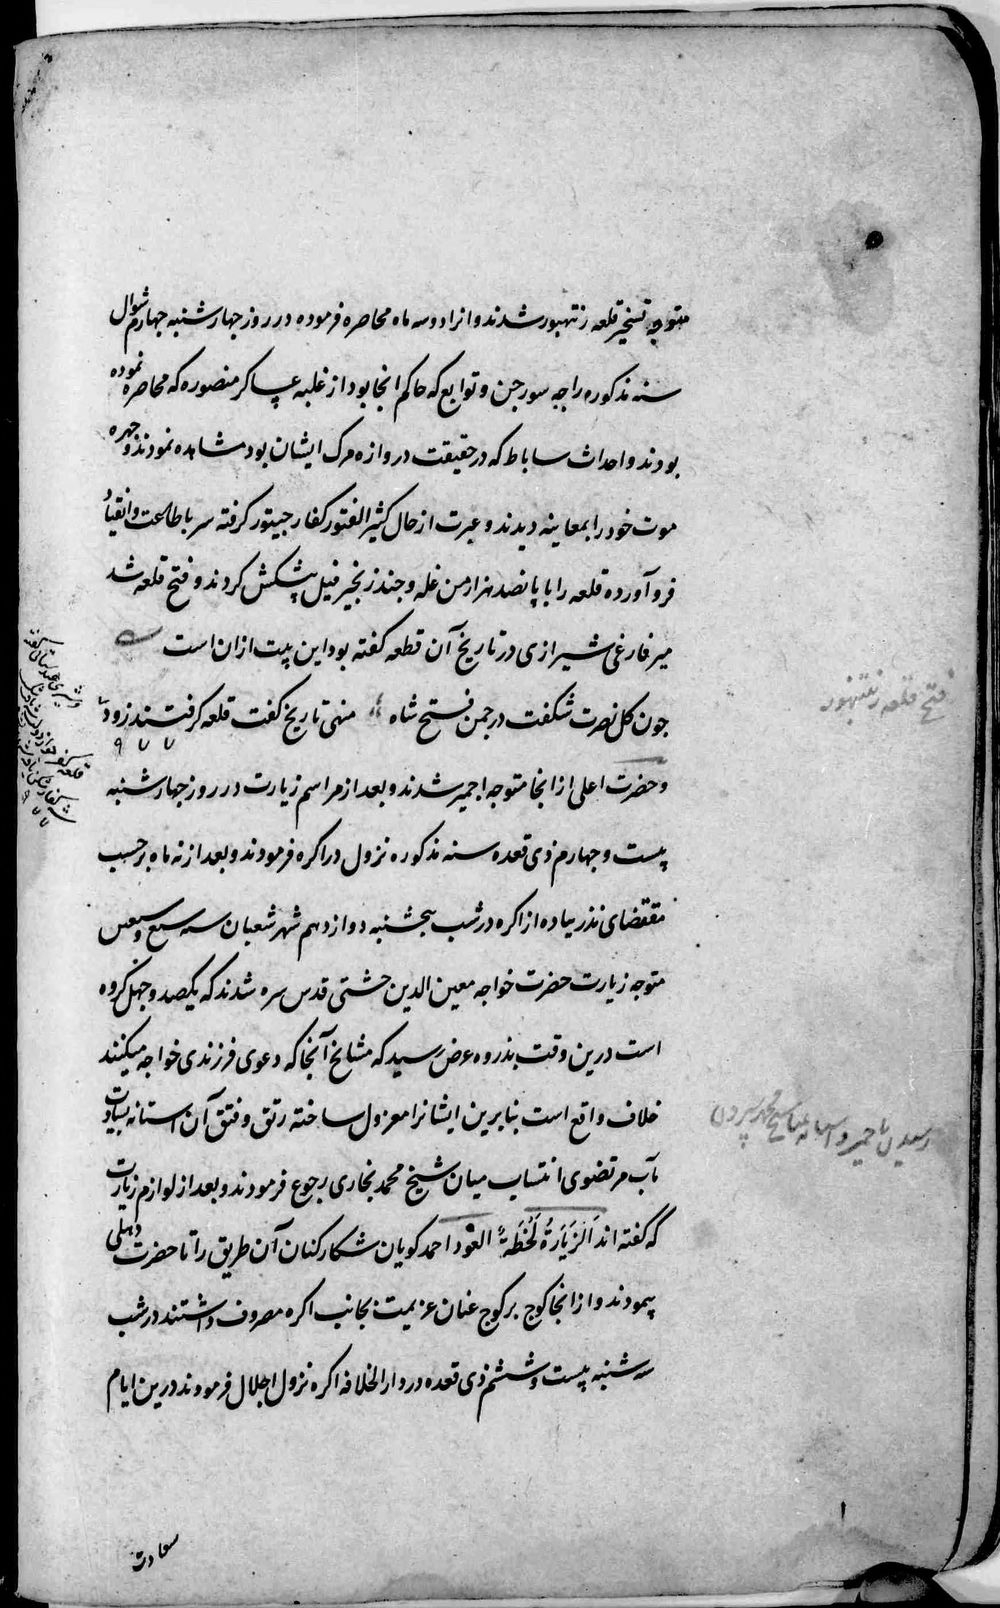 متوجه تسخیر قلعه رنتهبور شدند و انرا دو سه ماه محاصره فرموده در روز جهارشنبه جهارم شوال
سنه مذکوره راجه سورجن و توابع که حاکم انجا بود از غلبه عساکر منصوره که محاصره نموده
بودند و احداث ساباط که در حقیقت دروازه مرک ایشان بود مشاهده نمودند و جهره
موت خود را بمعاینه دیدند و عبرت از حال کثیر الفتور کفار جیتور کرفته سر باطاعت و انقیاد
فرو آورده قلعه را با پانصد هزار من غله و جند زنجیر فیل پیشکش کردند و فتح قلعه شد
میر فارغی شیرازی در تاریخ آن قطعه کفته بود این بیت ازان است
جون کل نصرت شکفت در جمن فتح شاه منهی تاریخ کفت قلعه کرفتند زود
۹۷۷
و حضرت اعلی از انجا متوجه اجمیر شدند و بعد از مراسم زیارت در روز جهارشنبه
بیست و جهارم ذی قعده سنه مذکوره نزول در اکره فرمودند و بعد از نه ماه برحسب
مقتضای نذر پیاده از اکره در شب پنجشنبه دوازدهم شهر شعبان سنه سبع و سبعین
متوجه زیارت حضرت خواجه معین الدین جشتی قدس سره شدند که یکصد و جهل کروه
است درین وقت بذروه عرض رسید که مشایخ آنجا که دعوی فرزندی خواجه میکنند
خلاف واقع است بنابرین ایشانرا معزول ساخته رتق و فتق آن استانه بسیادت
مآب مرتضوی انتساب میان شیخ محمد بخاری رجوع فرمودند و بعد از لوازم زیارت
که کفته اند اَلزِّیَارَةُ لَحْظَةٌ العود احمد کویان شکار کنان آن طریق را تا حضرت دهلی
پیمودند و از انجا کوج بر کوج عنان عزیمت بجانب اکره مصروف داشتند در شب
سه شنبه بیست و ششم ذی قعده در دار الخلافه اکره نزول اجلال فرمودند درین ایام
سعادت
فتح قلعه رنتهنبور
۱